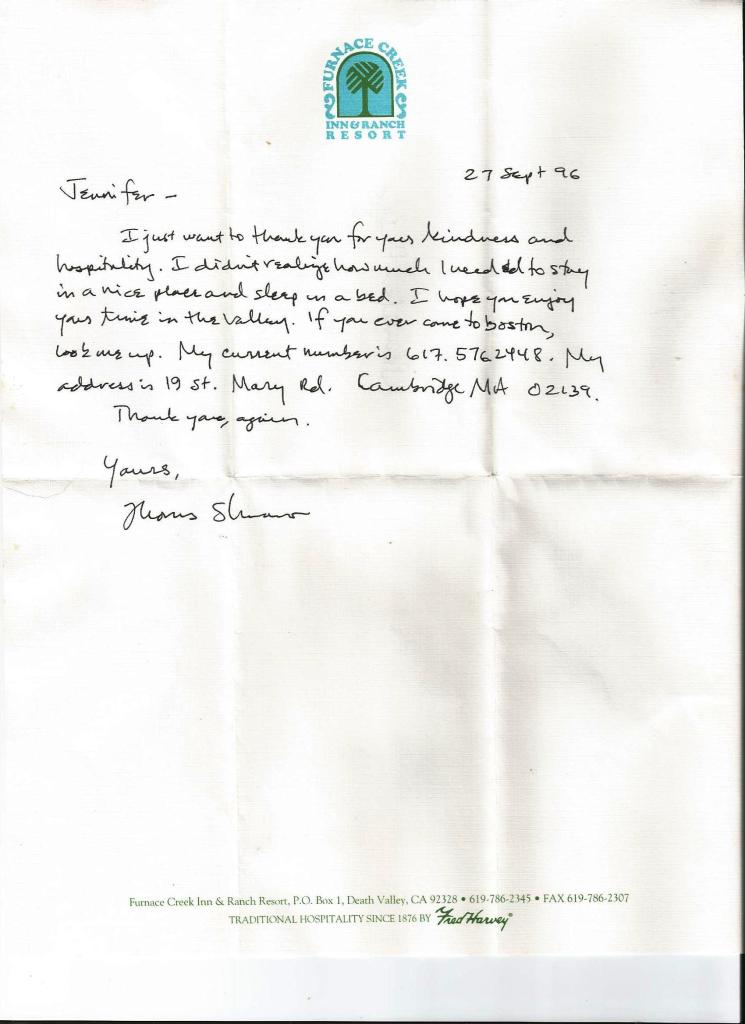 FURNACE CREEK
INN & RANCH
RESORT
27 Sept 96
Jennifer –
I just want to thank you for your kindness and
hospitality. I didn't realize how much I needed to stay
in a nice place and sleep in a bed. I hope you enjoy
your time in the Valley. If you ever come to boston,
look me up. My current number is 617.5762448. My
address is 19 St. Mary Rd. Cambridge MA 02139.
Thank you, again.
Yours,
Furnace Creek Inn & Ranch Resort, P.O. Box 1, Death Valley, CA 92328 • 619-786-2345 • FAX 619-786-2307
TRADITIONAL HOSPITALITY SINCE 1876 BY Fred Harvey